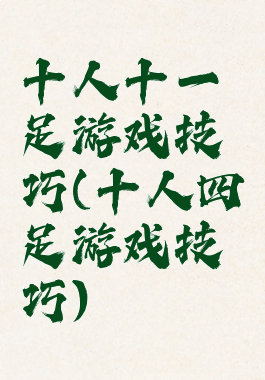 十人十一
足游戏技
巧(十人四
足游戏技
巧)